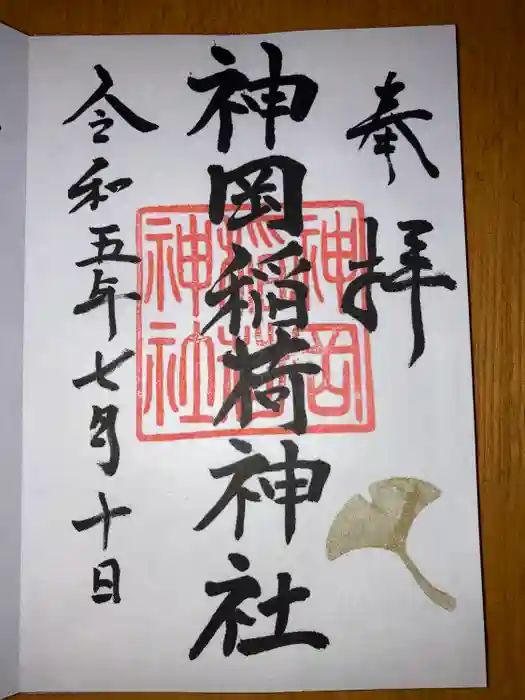 奉拝
神岡稲荷神社
神岡
稲荷
神社
令和五年七月十日